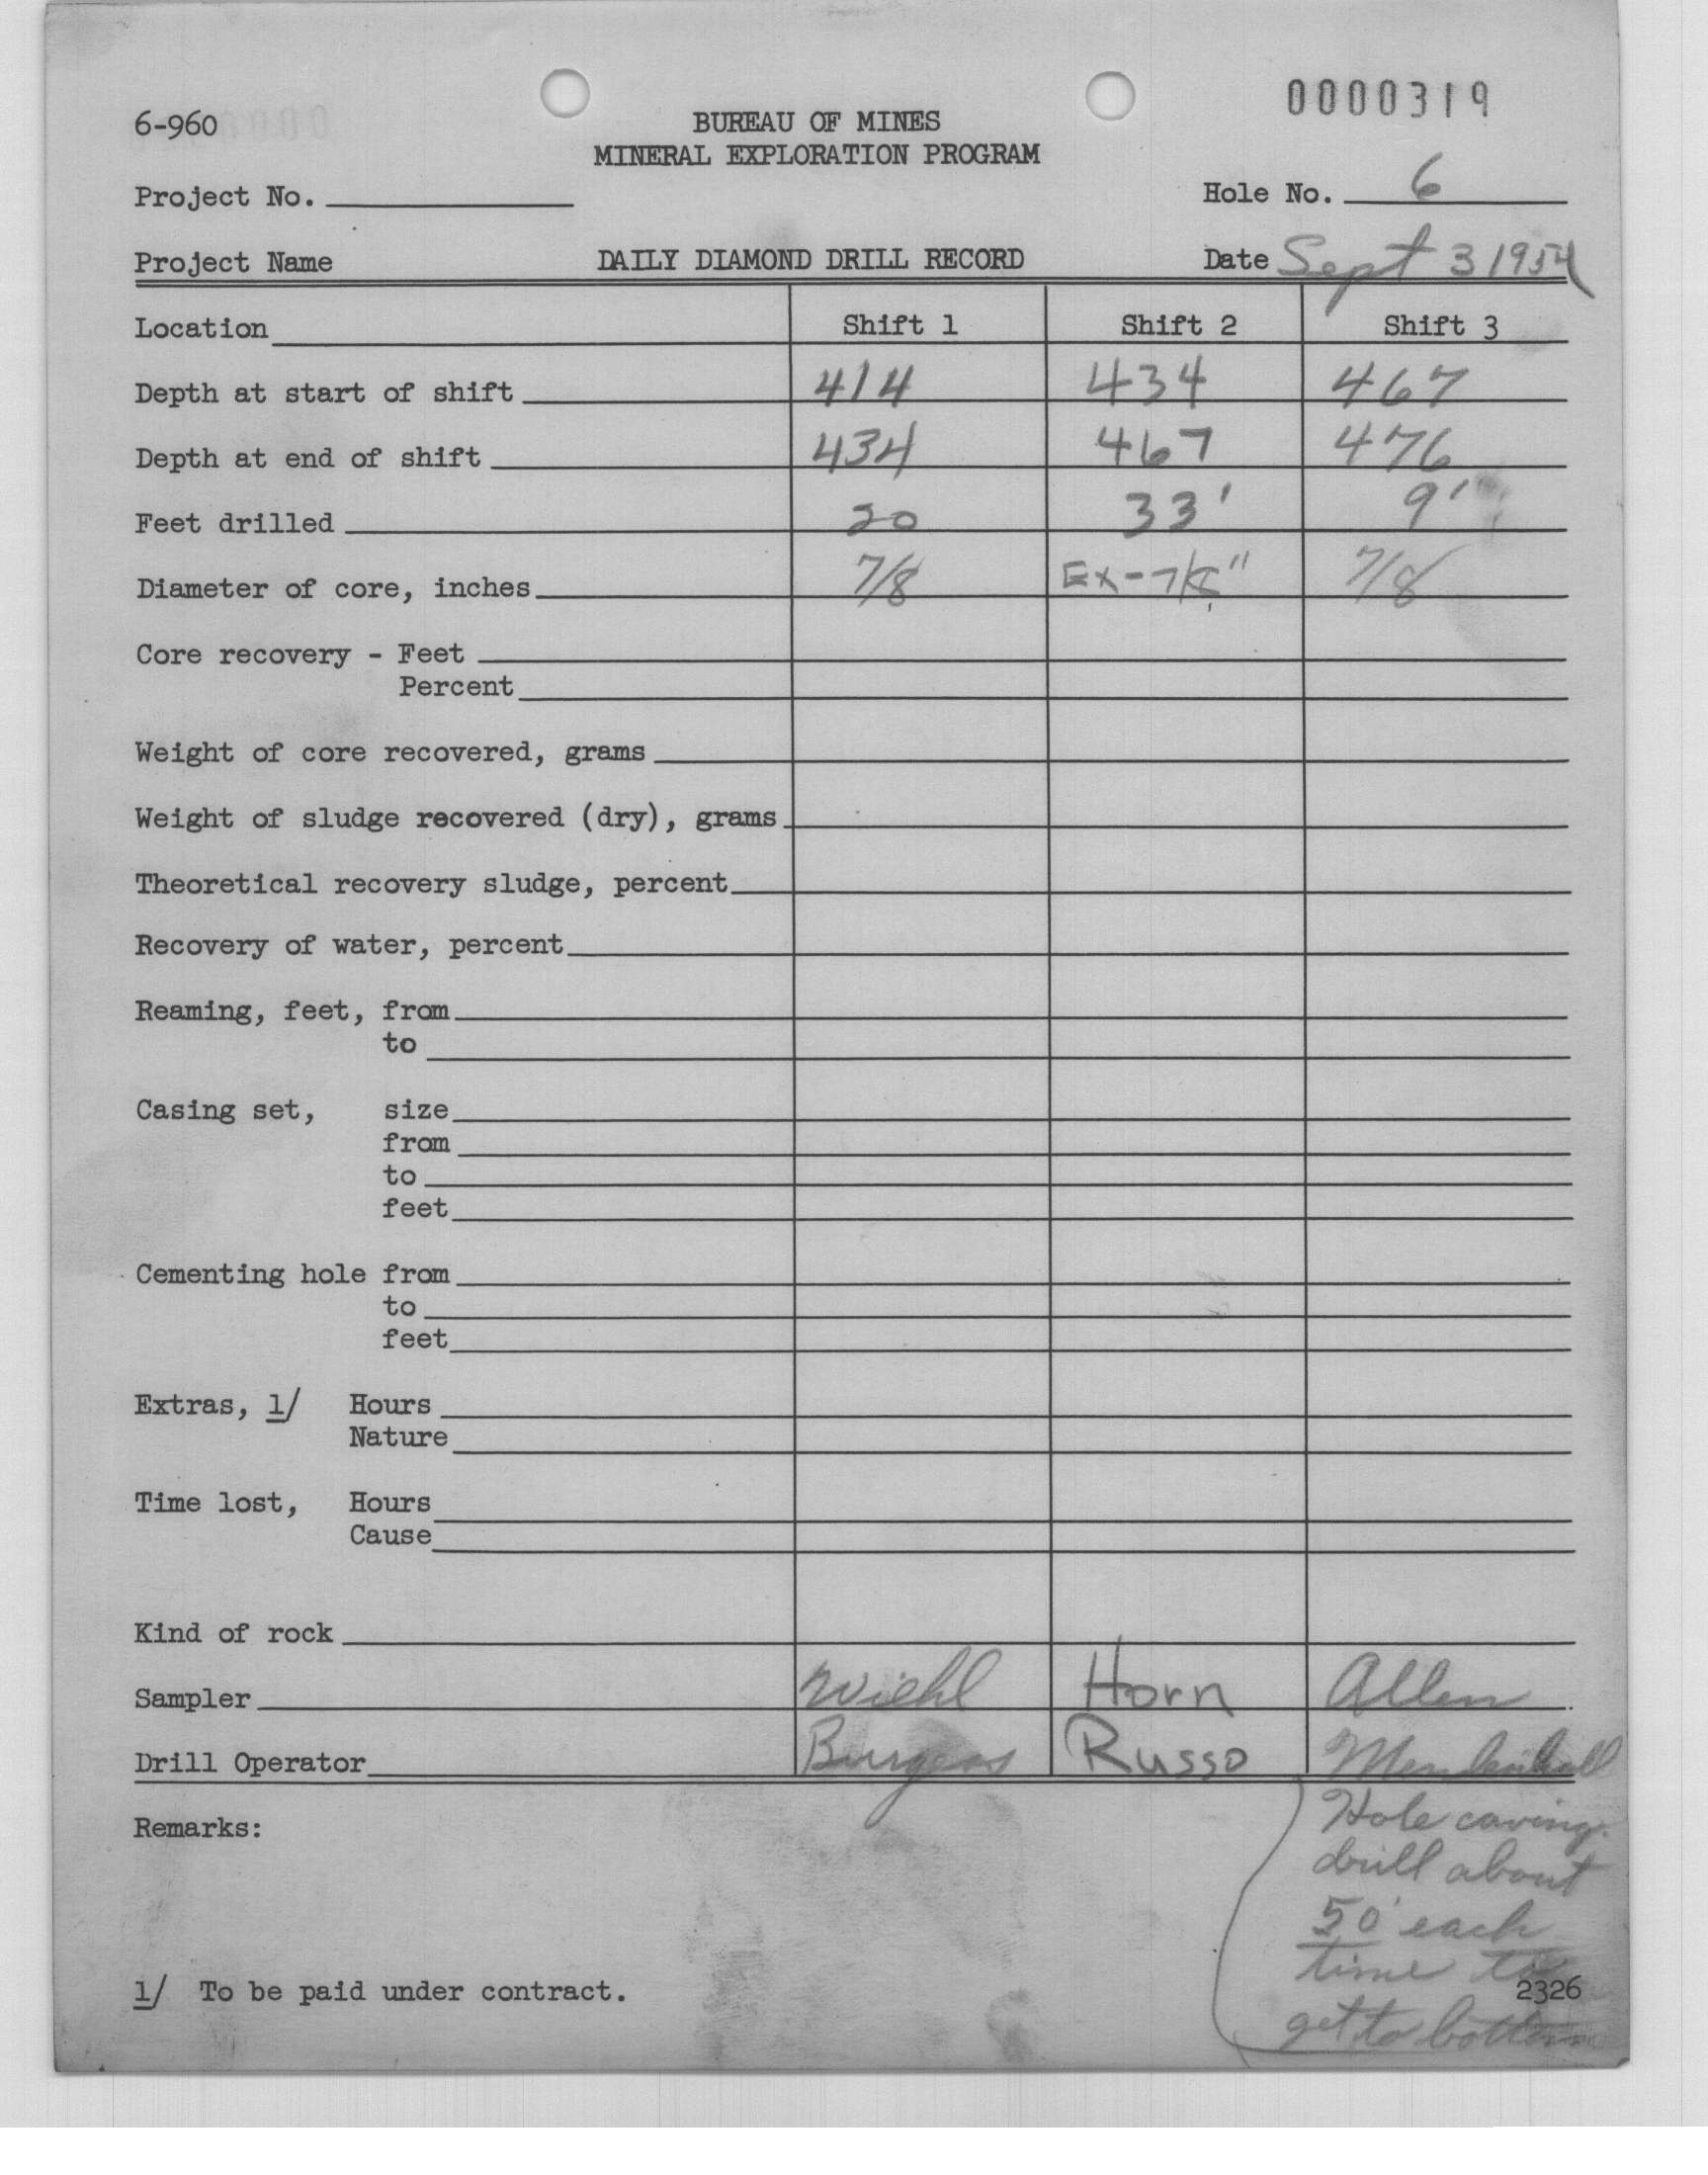 0000319
6-960
BUREAU OF MINES
MINERAL EXPLORATION PROGRAM
Project No.
Hole No. 6
Project Name DAILY DIAMOND DRILL RECORD Date Sept 3 1954
Location Shift 1 Shift 2 Shift 3
Depth at start of shift 414 434 467
Depth at end of shift 434 467 476
Feet drilled 20 33' 9'
Diameter of core, inches 7/8 Ex-7/8" 7/8
Core recovery - Feet
Percent
Weight of core recovered, grams
Weight of sludge recovered (dry), grams
Theoretical recovery sludge, percent
Recovery of water, percent
Reaming, feet, from
to
Casing set, size
from
to
feet
Cementing hole from
to
feet
Extras, 1/ Hours
Nature
Time lost, Hours
Cause
Kind of rock
Sampler Wiehl Horn Allen
Drill Operator Burgess Russo Mendenhall
Remarks:
Hole caving.
drill about
50' each
time to
get to bottom
1/ To be paid under contract.
2326